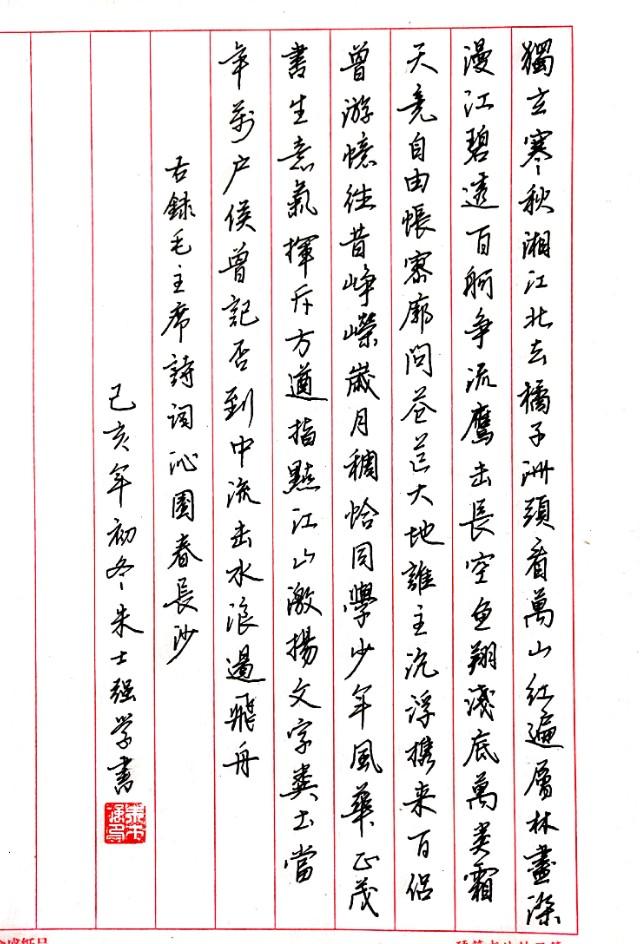 獨立寒秋湘江北去橘子洲頭看萬山紅遍層林盡染
漫江碧透百舸争流鷹击長空鱼翔淺底萬类霜
天竞自由悵寥廓問苍茫大地誰主沉浮携来百侣
曾游憶往昔峥嵘歲月稠恰同學少年風華正茂
書生意氣揮斥方遒指點江山激揚文字糞土當
年萬户侯曾記否到中流击水浪遏飛舟
右録毛主席詩词沁園春長沙
己亥年初冬朱士强学書